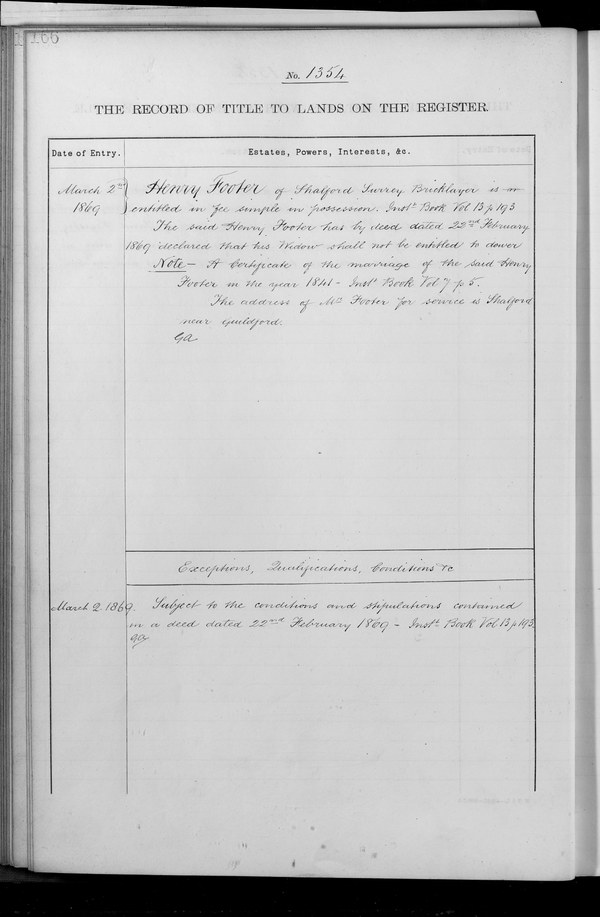 166
No. 1354
THE RECORD OF TITLE TO LANDS ON THE REGISTER.
Date of Entry.
Estates, Powers, Interests, &c.
March 2nd
1869
Henry Footer of Shalford Surrey Bricklayer is
entitled in fee simple in possession. Instt Book Vol 13 p 193
The said Henry Footer has by deed dated 22nd February
1869 declared that his Widow shall not be entitled to dower
Note — A Certificate of the marriage of the said Henry
Footer in the year 1841 - Instt Book Vol 7 p 5.
The address of Mr Footer for service is Shalford
near Guildford.
GA
Exceptions, Qualifications, Conditions &c
March 2. 1869.
Subject to the conditions and stipulations contained
in a deed dated 22nd February 1869 - Instt Book Vol 13 p 193.
GA